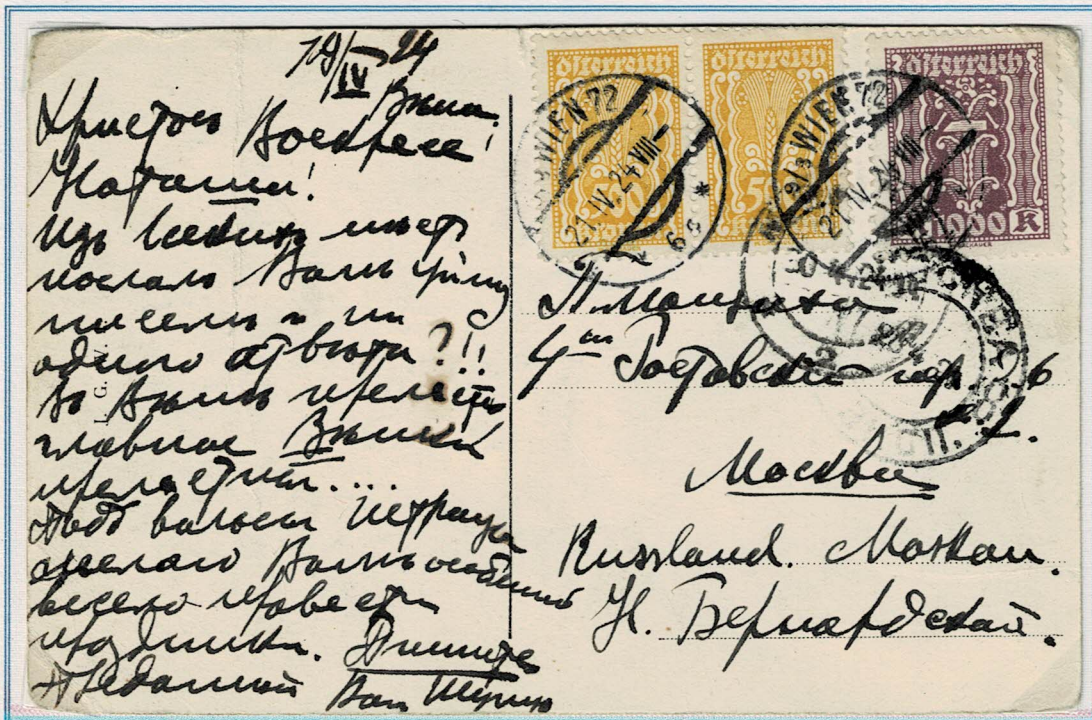 19/IV 24
Вѣна.
Христосъ
Воскресе!
Наташа!
Изъ всякихъ мѣст
послалъ Вамъ
писемъ и ни
одного отвѣта?!!
Въ Вѣнѣ прелесть
главное Вѣнки
прелестны....
Подъ вальсы Штрауса
желаю Вамъ особенно
весело провести
праздники. Пишите
Преданный
Ваш
österreich
österreich
österreich
500
1000 K
WIEN 72
21.IV.24.VIII
* 6c
WIEN 72
21.IV.24.VIII
4ый Ростовский пер 6
Москва
Russland. Moskau.
Н. Бернардской.